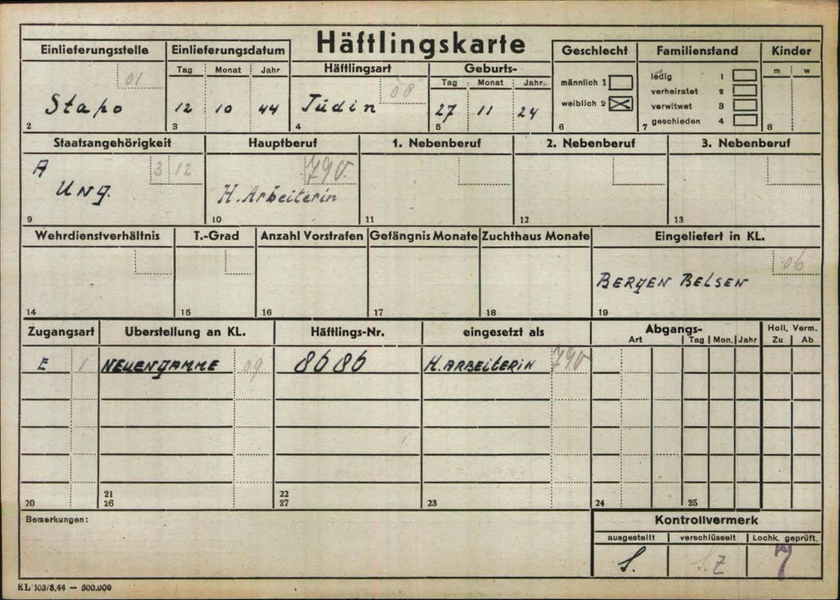 Häftlingskarte
Einlieferungsstelle
01
Stapo
2
Einlieferungsdatum
Tag Monat Jahr
12 10 44
3
Häftlingsart
08
Jüdin
4
Geburts-
Tag Monat Jahr
27 11 24
5
Geschlecht
männlich 1
weiblich 2
6
Familienstand
ledig 1
verheiratet 2
verwitwet 3
geschieden 4
7
Kinder
m w
8
Staatsangehörigkeit
A 3 12
Ung.
9
Hauptberuf
790
H.Arbeiterin
10
1. Nebenberuf
11
2. Nebenberuf
12
3. Nebenberuf
13
Wehrdienstverhältnis
14
T.-Grad
15
Anzahl Vorstrafen
16
Gefängnis Monate
17
Zuchthaus Monate
18
Eingeliefert in KL.
06
BERGEN BELSEN
19
Zugangsart
E 1
20
Überstellung an KL.
NEUENGAMME 09
21
26
Häftlings-Nr.
8686
22
27
eingesetzt als
H.ARBEITERIN 790
23
Abgangs-
Art Tag Mon. Jahr
24 25
Holl. Verm.
Zu Ab
Bemerkungen:
Kontrollvermerk
ausgestellt verschlüsselt Lochk. geprüft.
S. 7
KL 103/5.44 — 500.000